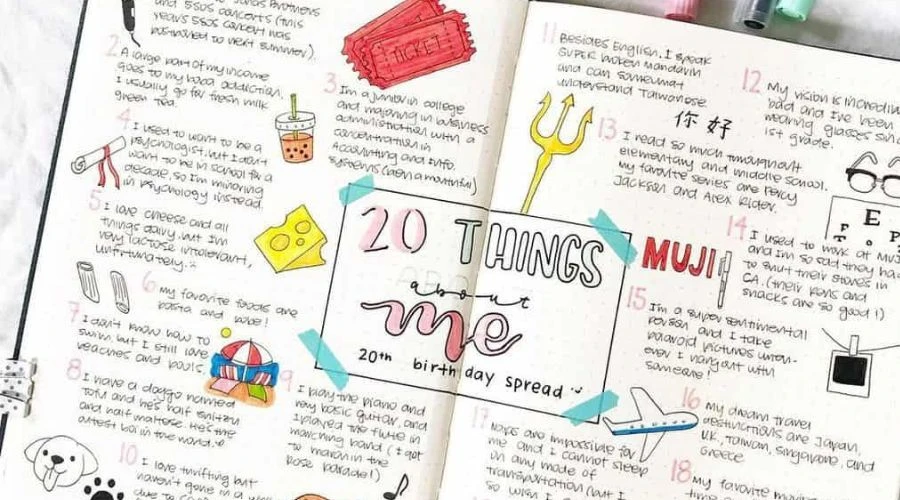 Jonas Brothers
and 5SOS concerts (this
years 5SOS concert was
postponed to next summer).
2
A large part of my income
goes to my boba addiction.
I usually go for fresh milk
green tea.
TICKET
3
I'm a junior in college
and majoring in business
administration with a
concentration in
Accounting and Info.
Systems (dang a mouthful)
4
I used to want to be a
psychologist, but I didn't
want to be in school for a
decade, so I'm minoring
in psychology instead.
5
I love cheese and all
things dairy, but I'm
very lactose intolerant,
unfortunately.
6
My favorite foods are
pasta and
7
I don't know how to
swim, but I still love
beaches and pools
8
I have a doggo named
Tofu and he's half shitzu
and half maltese. He's the
cutest boi in the world.
9
I play the piano and
very basic guitar, and
I played the flute in
marching band (I got
to march in the
Rose parade!)
10
I love thrifting but
haven't gone in a
due to
20 THINGS
about
me
20th birthday spread
11
Besides English, I speak
SUPER broken Mandarin
and can somewhat
understand Taiwanese
你好
12
My vision is
bad and I've been
wearing glasses
1st grade.
E
F
13
I read so much throughout
elementary and middle school.
My favorite series are Percy
Jackson and Alex Rider.
14
I used to work at
and I'm so sad they
to shut their stores in
CA. (their pens and
snacks are so good!)
MUJI
15
I'm a super sentimental
person and I take
polaroid pictures
ever I hangout with
someone!
16
My dream travel
destinations are Japan,
UK, Taiwan, Singapore, and
Greece
17
Naps are impossible for
me and I cannot sleep
in any mode of
transportation (but I
so wish I
18
My favorite